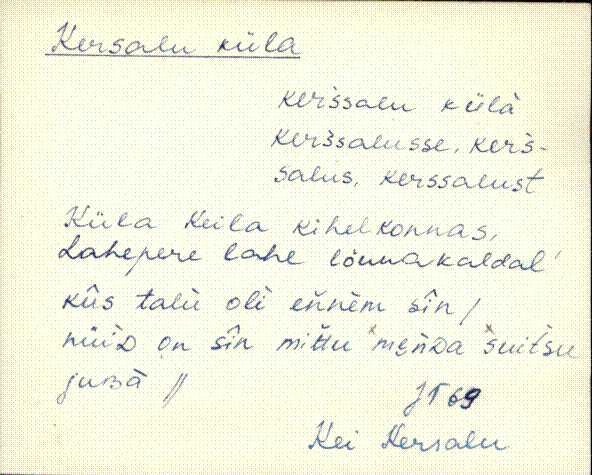 Kersalu küla
kerśsalu külä
kerśsalusse, kerś-
salus, kerssalust
Küla Keila kihelkonnas,
Lahepere lahe lõunakaldal
kûs talu oli eńnèm sîn /
nüiD on sîn mittu
juBä //
JT 69
Kei Kersalu